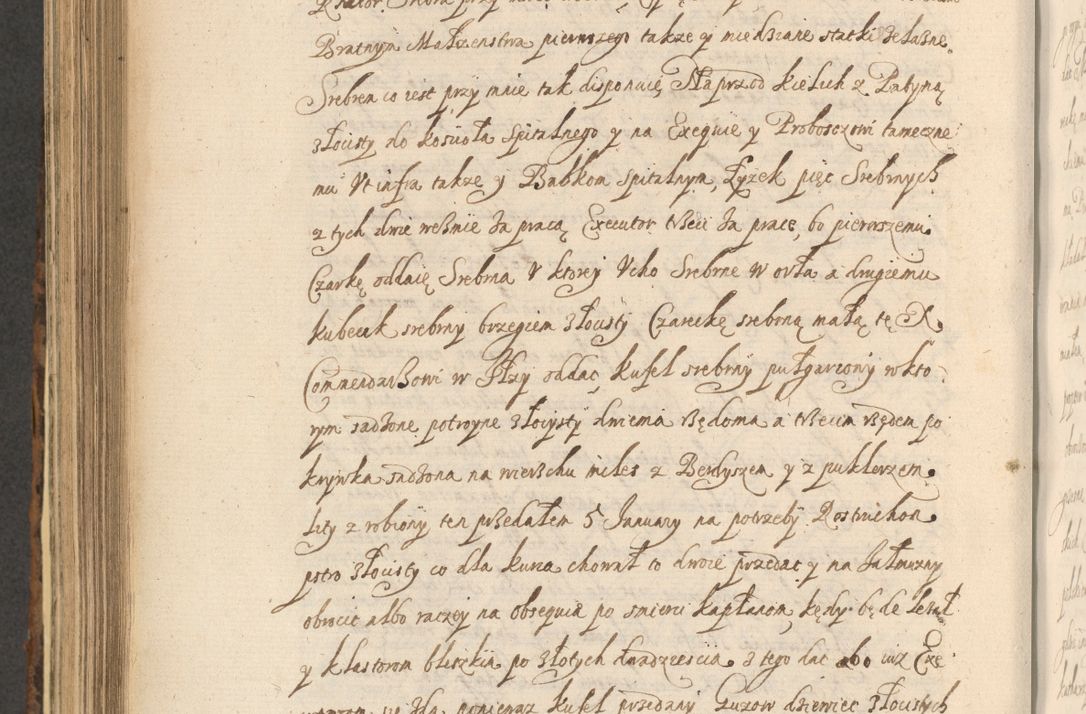 Bratnym Małzenstwa pierwszego takze y miedziane statki żelazne
Srebra co iest przy mnie tak disponuię Naprzod kielich z Patyną
złocisty do kościoła Spitalnego y na Exequie y Proboszczowi tameczne
mu Vt infra takze y Babkom Spitalnym, Łyzek pięc Srebrnych
z tych dwie weźmie za pracą Executor trzeci za prace, bo pierwszemu
Czarkę oddaię Srebrna V ktorey Vcho Srebrne a drugiemu
kubecak srebrny brzegiem złocisty Czareckę srebrną małą tę X.
Commendarzowi w oddac kufel srebrny pułgarcowy w kto
rym sadzone potroyne złocysty dwiema rzędoma a trzecia rzędem po
krywka sadzona na wierzchu miles z Berdyszem y z puklerzem
Lity z robiony ten przedałem 5 January na potrzeby Rostruchon
pstro złocisty co dla kura chował to dwoie przedac y na Jałmuzny
obrocic albo raczey na obsequia po smierci kapłanom, kędy będe lezał
y klastorom bliskim po złotych dwadziescia z tego dac abo iuz Exe
poniewaz kufel przedany Guzow dziewiec złocistych